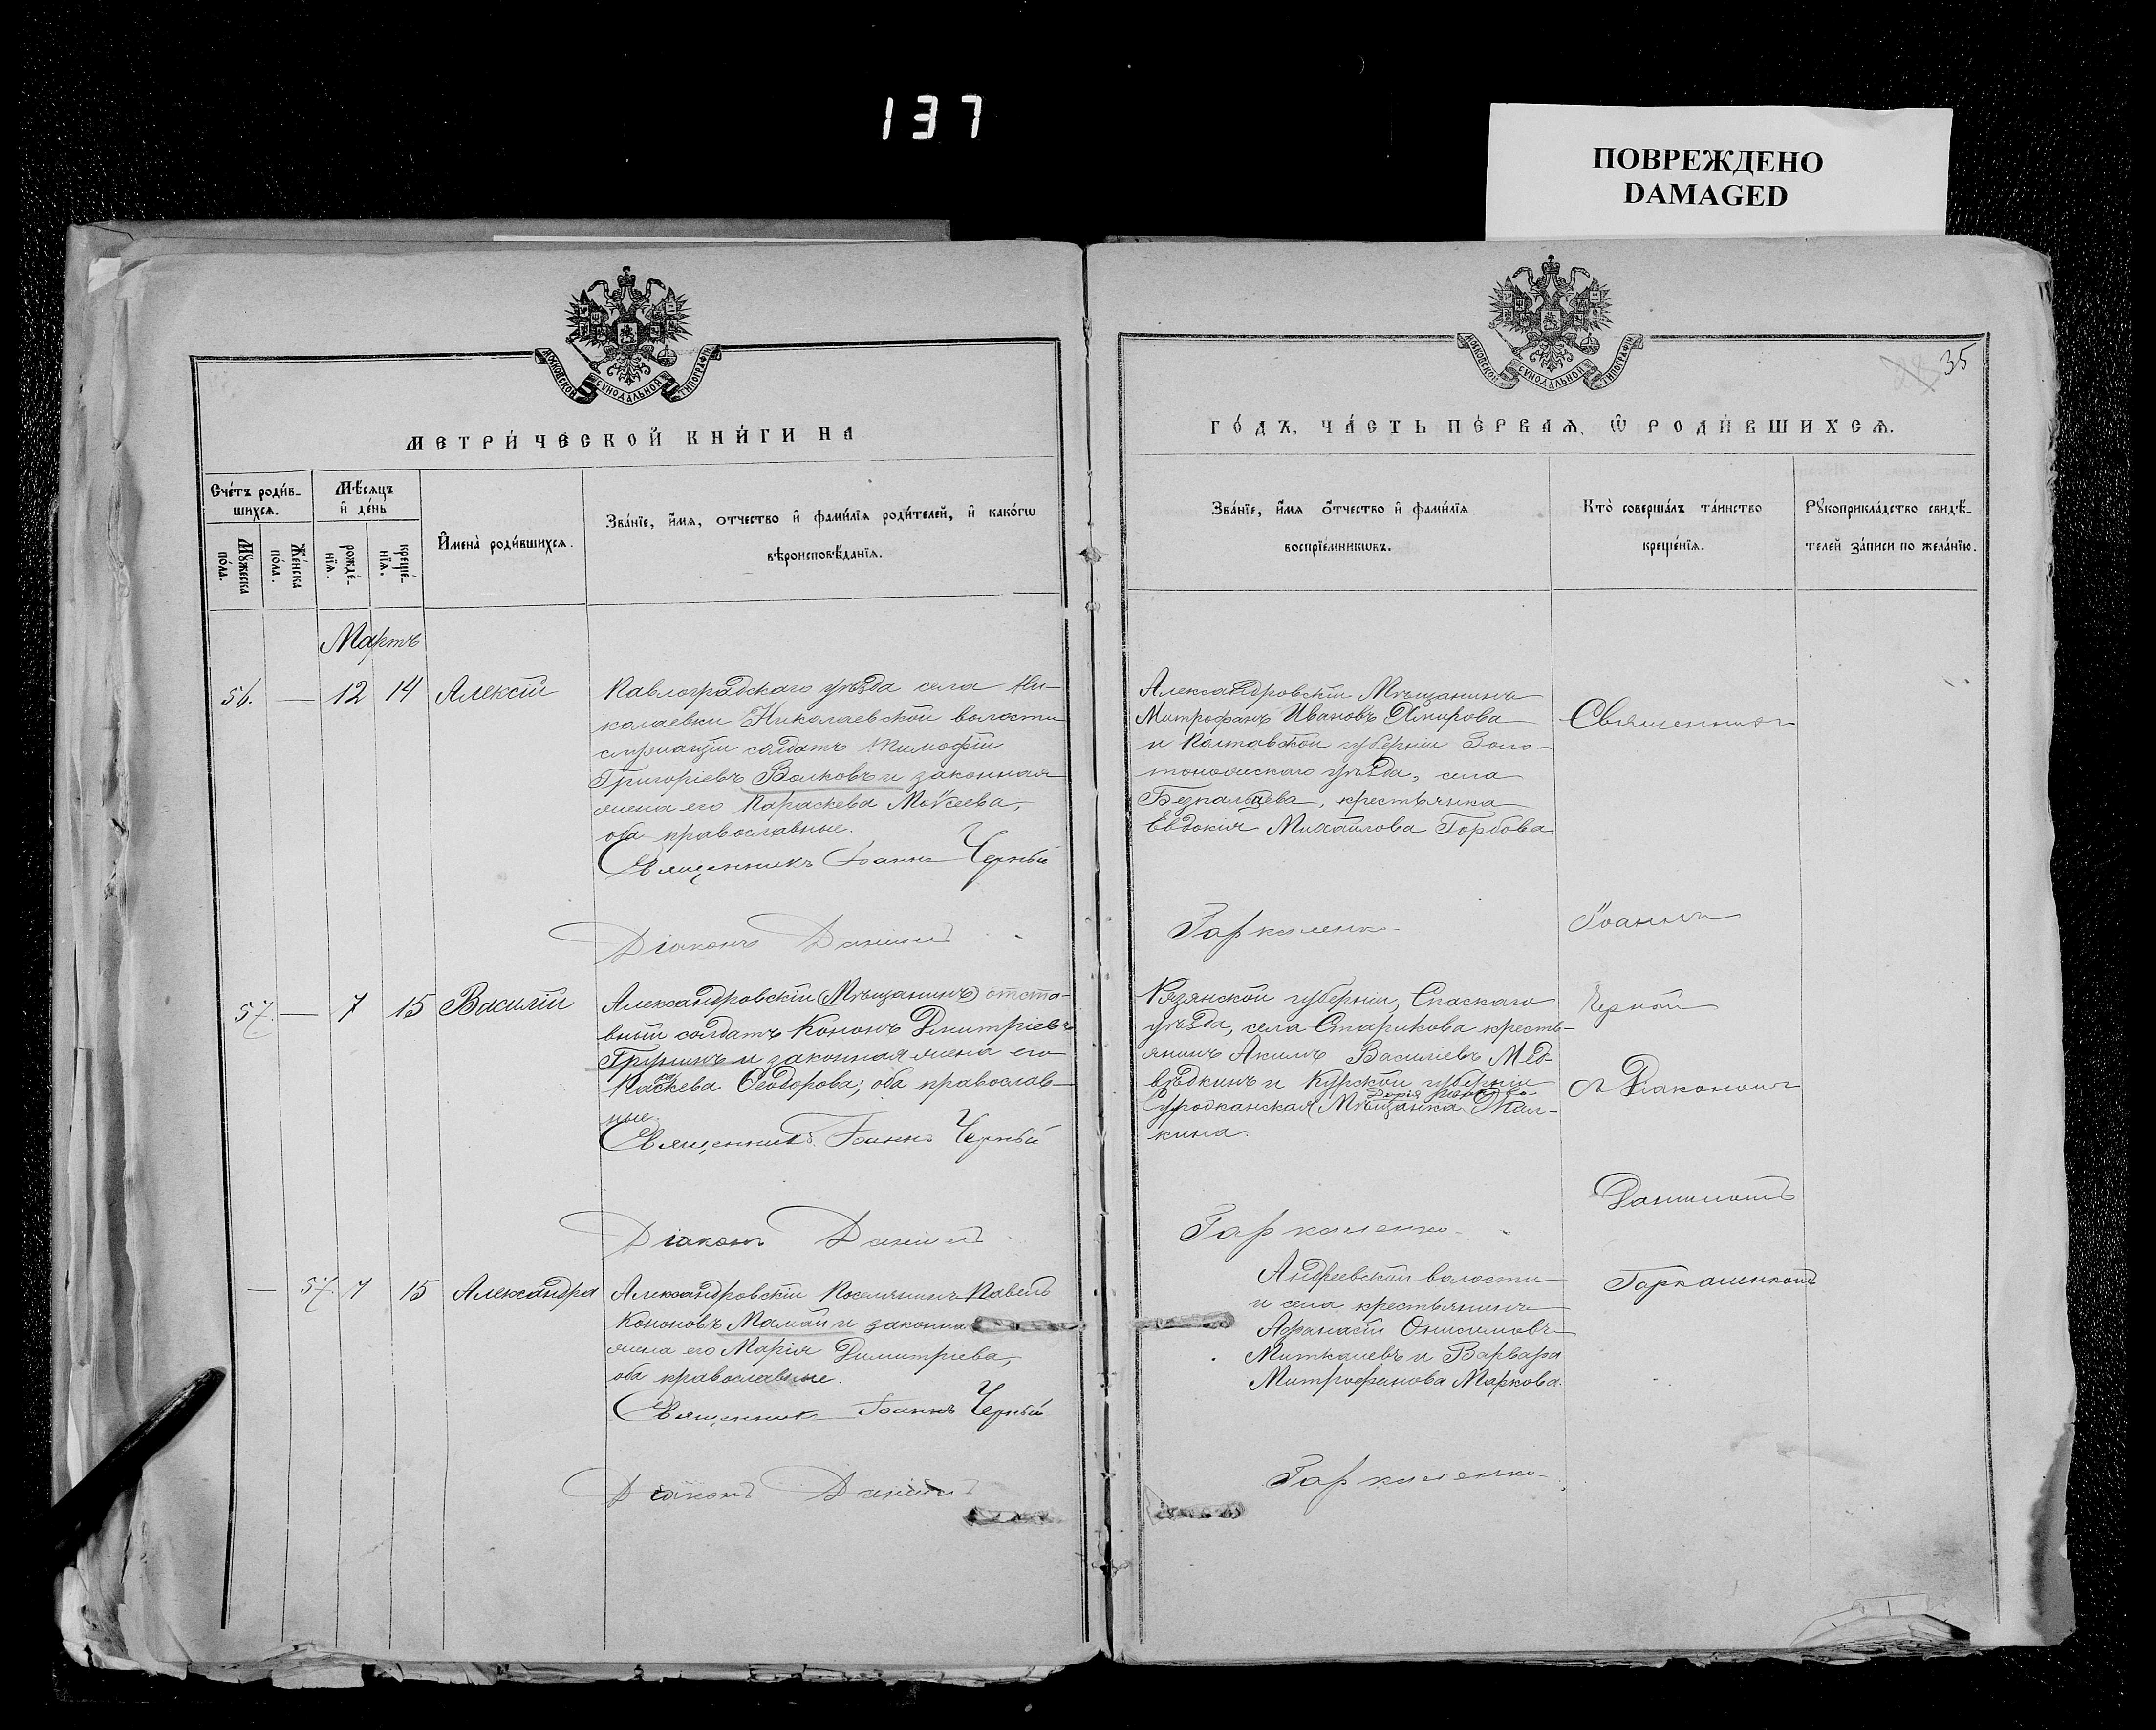 137
ПОВРЕЖДЕНО
DAMAGED
МОСКОВСКОЙ СѴНОДАЛЬНОЙ ТИПОГРАФІИ
МЕТРИ́ЧЕСКОЙ КНИ́ГИ НА
Сче́тъ роди́в-
шихсѧ.
Мѣ́сѧцъ
и҆ де́нь
Мꙋ́жеска
по́ла.
Же́нска
по́ла.
рожде́-
нїѧ.
креще́-
нїѧ.
И҆мена̀ роди́вшихсѧ.
Зва́нїе, и҆́мѧ, ѻ҆́тчество и҆ фами́лїѧ роди́телей, и҆ како́гѡ
вѣроисповѣ́данїѧ.
Мартъ
56. — 12 14 Алексій
Павлоградскаго уѣзда села Ни-
колаевки Николаевской волости
служащій солдатъ Тимофій
Григоріевъ Волковъ и законная
жена его Параскева Моѵсеева,
оба православные.
Священникъ Іоаннъ Черный
Діаконъ Даніилъ
57. — 7 15 Василій
Александровскій (Мѣщанинъ) отста-
вный солдатъ Кононъ Дмитріевъ
и законная жена его
Ѳеодорова; оба православ-
ные.
Священникъ Іоаннъ Черный
Діаконъ Даніилъ
— 57. 7 15 Александра
Александровскій Поселянинъ Павелъ
Кононовъ Мамай и законна
жена его Марія Димитріева,
оба православные.
Священникъ Іоаннъ Черный
Діаконъ Даніилъ
МОСКОВСКОЙ СѴНОДАЛЬНОЙ ТИПОГРАФІИ
35
ГО́ДЪ, ЧА́СТЬ ПЕ́РВАѦ, Ѡ҆ РОДИ́ВШИХСѦ.
Зва́нїе, и҆́мѧ ѻ҆́тчество и҆ фами́лїѧ
воспрїе́мникѡвъ.
Кто̀ соверша́лъ та́инство
креще́нїѧ.
Рꙋкоприкла́дство свидѣ́-
телей за́писи по жела́нїю.
Александровскій Мѣщанинъ
Митрофанъ Ивановъ
и Полтавской губерніи Золо-
тоношскаго уѣзда, села
крестьянка
Евдокія Михайлова Горбова.
Гаркаленко
Рязянской губерніи, Спаскаго
уѣзда, села Старикова кресть-
янинъ Акимъ Василіевъ Мед-
вѣдкинъ и Курской губерніи
Дарія
Мѣщанка
кина.
Гаркаленко
Андреевской волости
и села крестьянинъ
Афанасій Онисимовъ
Миткалевъ и Варвара
Митрофанова Маркова.
Гаркаленко
Священникъ
Іоаннъ
Черный
съ Діакономъ
Даніиломъ
Гаркаленкомъ